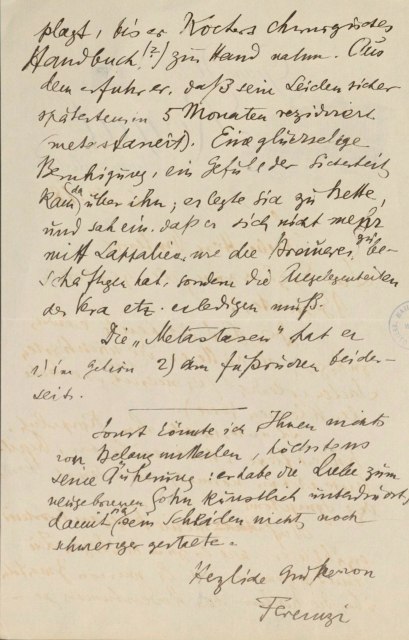 plagt, bis er Kochers chirurgisches
Handbuch (?) zu Hand nahm. Aus
dem erfuhr er, daß sein Leiden sicher
spätestens in 5 Monaten rezidiviert
(metastasiert). Eine glückselige
Beruhigung, ein Gefühl der Sicherheit
kam da über ihn; er legte sich zu Bette,
und sah ein, daß er sich nicht mehr
mit Lappalien, wie die Brauerei, zu be-
schäftigen hat, sondern die Angelegenheiten
der etz. erledigen muß.
Die „Metastasen" hat er
1) im Gehirn 2) am Fußrücken beider-
seits.
Sonst könnte ich Ihnen nichts
von Belang mitteilen, höchstens
seine Äußerung: er habe die Liebe zum
neugeborenen Sohn künstlich unterdrückt,
damit sein Scheiden nicht noch
schwieriger gestalte.
Herzliche Grüße von
Ferenczi